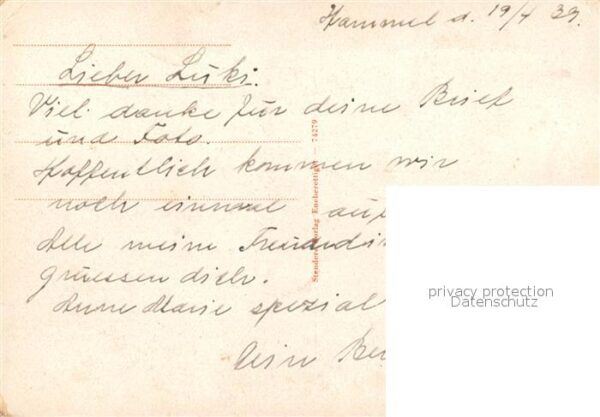 Hammel d. 19/4 39.
Lieber Luki.
Viel danke für deine Brief
und Foto.
Hoffentlich kommen wir
noch einmal auf
Alle meine
gruessen dich.
Anne Marie spezial
Stenders Verlag Eneberettiget — 74279
privacy protection
Datenschutz